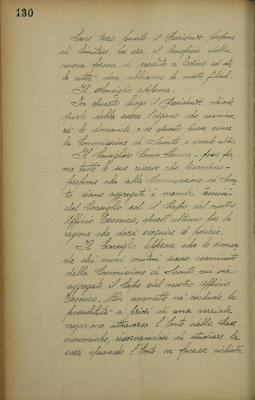 130
Come terzo punto il Presidente propone
di limitare per ora il beneficio della
nuova forma di credito a Torino ed al-
le città dove abbiamo le nostre filiali.
Il Consiglio approva.
In quarto luogo il Presidente chiede
quale debba essere l'organo che esamine-
rà le domande e se questo possa essere
la Commissione di Sconto o quale altro.
Il Consigliere
me tutte le sue riserve che
propone che alla Commissione di Scon-
to siano aggregati i membri tecnici
del Consiglio ed il Capo del nostro
Ufficio Tecnico, quest'ultimo per la
ragione che dovrà eseguire le perizie.
Il Consiglio approva che le doman-
de dei nuovi mutui siano esaminate
dalla Commissione di Sconto, cui sia
aggregato il Capo del nostro Ufficio
Tecnico. Non ammette nè esclude la
possibilità a priori di una parziale
erogazione attraverso l'Ente delle Case
economiche, riservandosi di studiare la
cosa quando l'Ente ne facesse richiesta